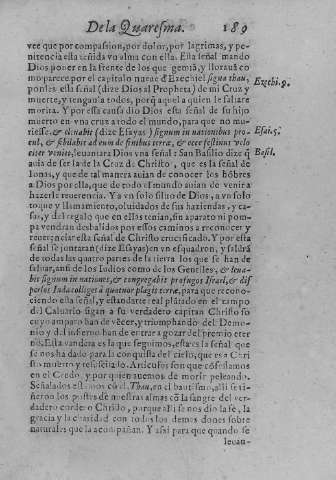 De la Quaresma. 189
vee que por compassion, por dolor, por lagrimas, y pe-
nitencia esta teñida vo alma con ella. Esta señal mando
Dios poner en la frente de los que gemiã, y llorauã co
mo parece por el capitulo nueue d'Ezechiel signa thau,
Ezechi.9.
ponles esta señal (dize Dios al Propheta) de mi Cruz y
muerte, y tengan a todos, porq̃ aquel a quien le saluare
morira. Y por esta causa dio Dios esta señal de su hijo
muerto en vna cruz a todo el mundo, para que no mu-
riesse. & eleuabit (dize Esayas) signum in nationibus pro
Esai.5.
cul, & sibilabit ad eum de finibus terræ, & ecce festinus velo
citer veniet, leuantara Dios vna señal: San Basilio dize q̃
Basil.
auia de ser la de la Cruz de Christo, que es la señal de
Ionas, y que de tal manera auian de conocer los hõbres
a Dios por ella, que de todo el mundo auian de venir a
hazerle reuerencia. Y a vn solo siluo de Dios, a vn solo
toque y llamamiento, oluidados de sus haziendas, y ca-
sas, y del regalo que en ellas tenian, sin aparato ni pom-
pa vendran desbalidos por essos caminos a reconocer y
reuerenciar esta señal de Christo crucificado. Y por esta
señal se juntaran (dize Esayas) en vn esquadron, y saldrã
de todas las quatro partes de la tierra los que se han de
saluar, ansi de los Iudios como de los Gentiles, & leua-
bit signum in nationes, & congregabit profugos Israel, & dis
persos Iuda colliget a quatuor plagis terræ, para que recono-
ciendo esta señal, y estandarte real plãtado en el campo
del Caluario sigan a su verdadero capitan Christo so
cuyo amparo han de vẽcer, y triumphando del Demo-
nio y del infierno han de entrar a gozar del premio eter
no. Esta vandera es la que seguimos, esta es la señal que
se nos ha dado para la conquista del cielo, que es a Chri
sto muerto y resuscitado. Articulos son que cõfessamos
en el Credo, y por quien auemos de morir peleando.
Señalados estamos cõ el Thau, en el baptismo, alli se ti-
ñeron los postes de nuestras almas cõ la sangre del ver-
dadero cordero Christo, porque alli se nos dio la fe, la
gracia y la charidad con todos los demas dones sobre
naturales que la acompañan. Y assi para que quando se
leuan-